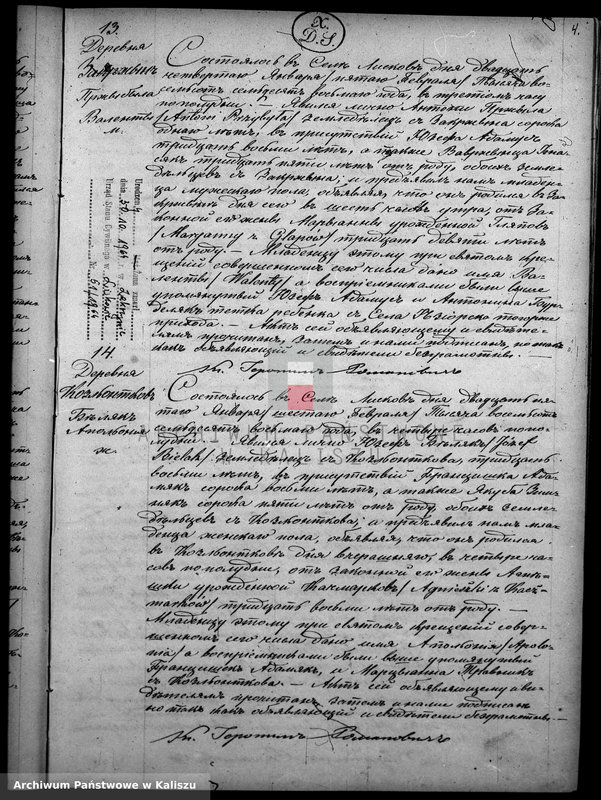 X.
D. S.
4.
13.
Деревня
Закржынъ
Пржыбыла
Валентій
м.
Состоялось въ Селѣ Лисковѣ дня двадцать
четвертаго Января /пятаго Февраля/ тысяча во-
семьсотъ семдесятъ восьмаго года, въ третьемъ часу
пополудни. — Явился лично Антоній Пржыбыла
/Antoni Przybyła/ земледѣлецъ съ Закржына сорока
лѣтъ, въ присутствіи Юзефа Адамусъ
тридцать восьми лѣтъ, а также Вавржынца
тридцать пяти лѣтъ отъ роду, обоихъ земле-
дѣльцевъ съ Закржына; и предъявилъ намъ младен-
ца мужескаго пола, объявляя, что онъ родился въ За-
кржынѣ дня сего въ шесть часовъ утра, отъ за-
конной его жены Марьянны урожденной
/Maryanny z / тридцать девяти лѣтъ
отъ роду. — Младенцу этому при святомъ кре-
щеніи совершенномъ сего числа дано имя Ва-
лентій /Walenty/ а воспріемниками были выше
упомянутый Юзефъ Адамусъ и Антонина
тетка ребенка съ Села
прихода. — Актъ сей объявляющему и свидѣте-
лямъ прочитанъ, затѣмъ и нами подписанъ, но такъ
какъ объявляющій и свидѣтели безграмотны. —
Urodzony
zmarł
dnia 30.10.1961 w Zakrzynie
Urząd Stanu Cywilnego w Liskowie
Nr 51/1961
14.
Деревня
Козлонтковъ
Бѣлякъ
Аполонія
ж.
Состоялось въ Селѣ Лисковѣ дня двадцать пя-
таго Января /шестаго Февраля/ тысяча восемьсотъ
семдесятъ восьмаго года, въ четыре часовъ попо-
лудни. — Явился лично Юзефъ Бѣлякъ /Józef
Bielak/ земледѣлецъ съ Козлонткова, тридцать
восьми лѣтъ, въ присутствіи Францишка Ада-
мякъ сорока восьми лѣтъ, а также Якуба
сорока пяти лѣтъ отъ роду, обоихъ земле-
дѣльцевъ съ Козлонткова, а предъявилъ намъ мла-
денца женскаго пола, объявляя, что онъ родился
въ Козлонтковѣ дня вчерашняго, въ четыре ча-
совъ пополудни, отъ законной его жены Агнѣ-
шки урожденной /Agnieszki z
/ тридцать восьми лѣтъ отъ роду. —
Младенцу этому при святомъ крещеніи совер-
шенномъ сего числа дано имя Аполонія /Apolo-
nia/ а воспріемниками были выше упомянутый
Францишекъ Адамякъ, и Марцыанна
съ Козлонткова. — Актъ сей объявляющему и сви-
дѣтелямъ прочитанъ, затѣмъ и нами подписанъ
но такъ какъ объявляющій и свидѣтели безграмотны. —
Archiwum Państwowe w Kaliszu